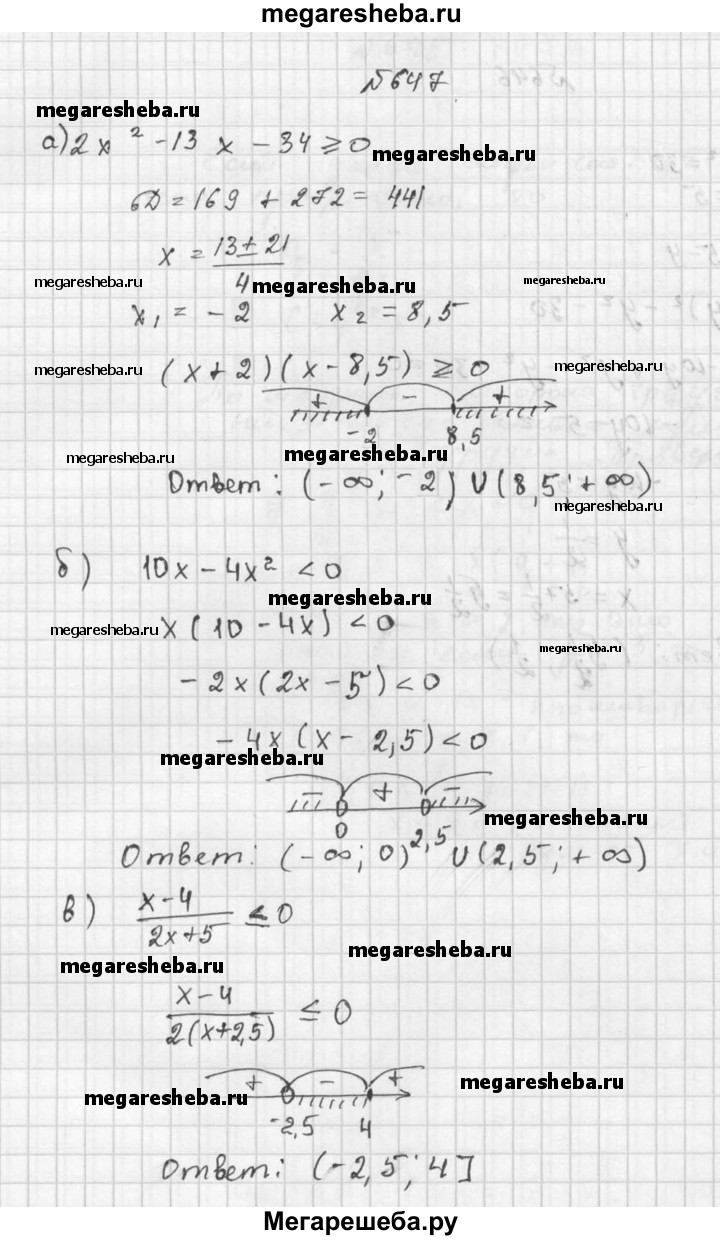 megaresheba.ru
№647
megaresheba.ru
а) 2x² - 13x - 34 ≥ 0
megaresheba.ru
D = 169 + 272 = 441
x = (13 ± 21) / 4
megaresheba.ru megaresheba.ru megaresheba.ru
x₁ = -2 x₂ = 8,5
megaresheba.ru (x + 2)(x - 8,5) ≥ 0 megaresheba.ru
+ - +
-2 8,5
megaresheba.ru megaresheba.ru
Ответ: (-∞; -2) ∪ (8,5; +∞)
megaresheba.ru
б) 10x - 4x² < 0
megaresheba.ru
megaresheba.ru x(10 - 4x) < 0
megaresheba.ru
-2x(2x - 5) < 0
-4x(x - 2,5) < 0
megaresheba.ru
- + -
megaresheba.ru
0 2,5
Ответ: (-∞; 0) ∪ (2,5; +∞)
в) (x-4)/(2x+5) ≤ 0
megaresheba.ru
megaresheba.ru
(x-4)/(2(x+2,5)) ≤ 0
+ - +
megaresheba.ru megaresheba.ru
-2,5 4
Ответ: (-2,5; 4]
Мегарешеба.ру